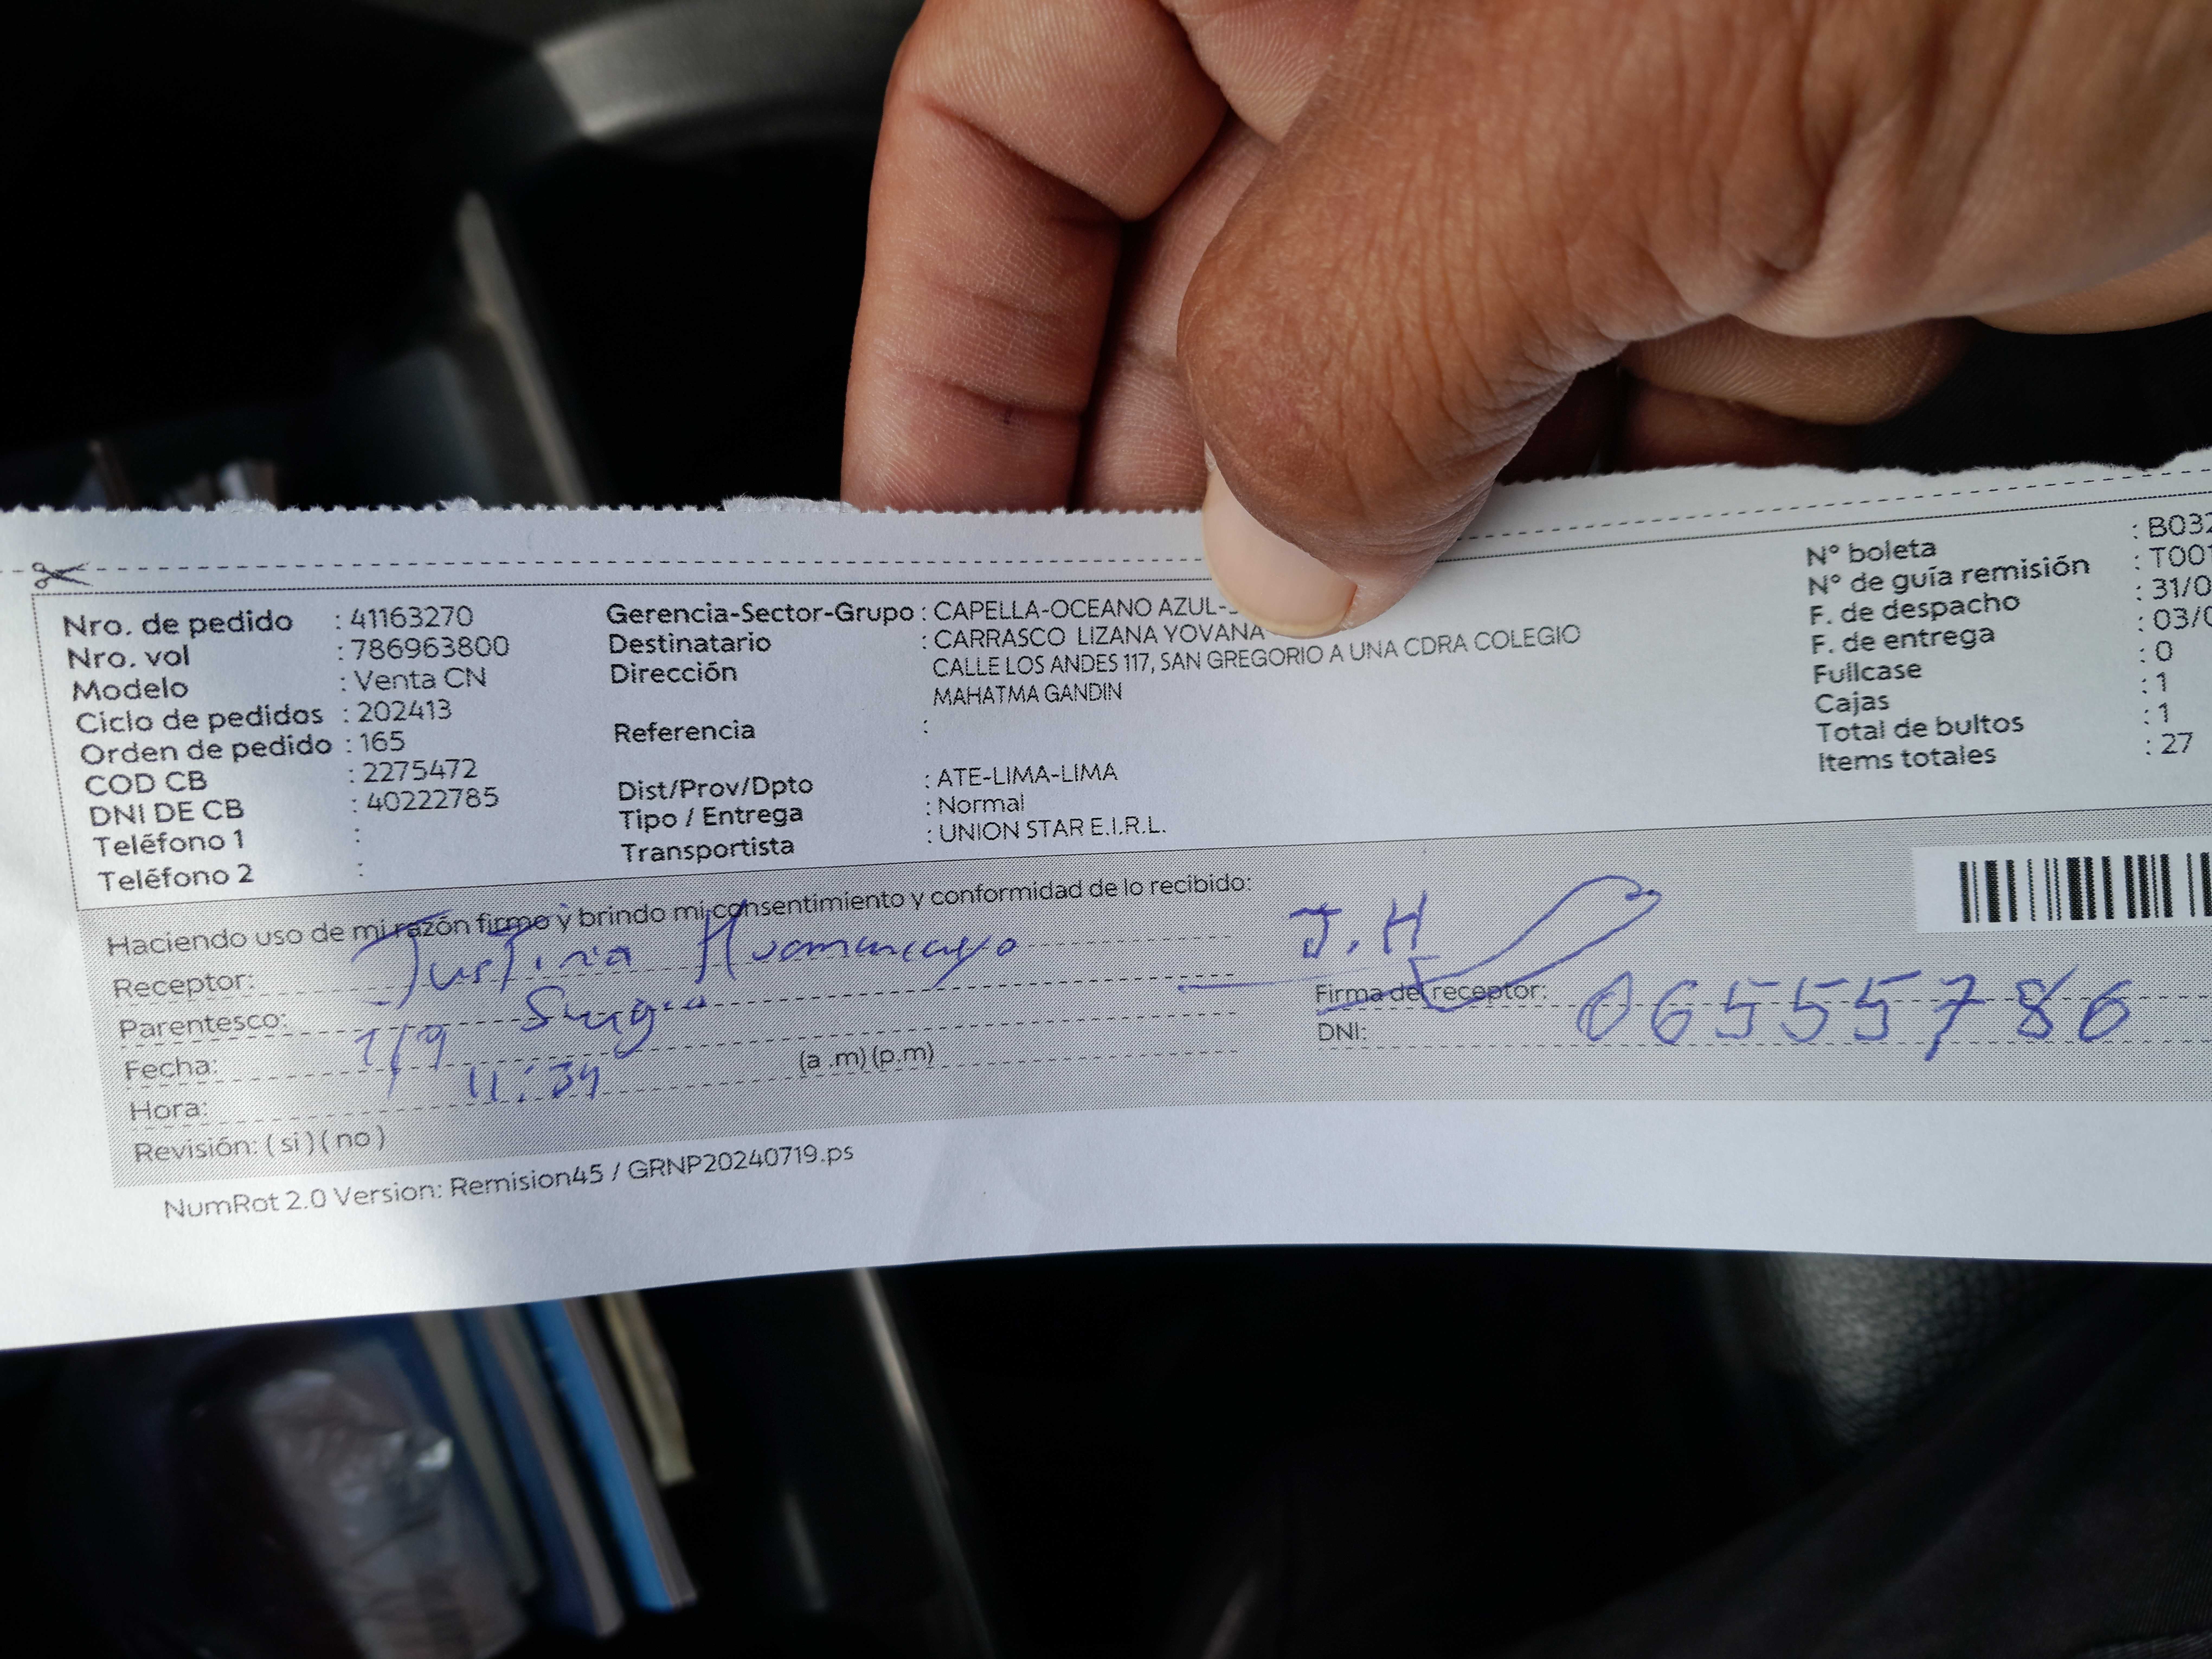 Nro. de pedido : 41163270
Nro. vol : 786963800
Modelo : Venta CN
Ciclo de pedidos : 202413
Orden de pedido : 165
COD CB : 2275472
DNI DE CB : 40222785
Teléfono 1 :
Teléfono 2 :
Gerencia-Sector-Grupo : CAPELLA-OCEANO AZUL-
Destinatario : CARRASCO LIZANA YOVANA
Dirección CALLE LOS ANDES 117, SAN GREGORIO A UNA CDRA COLEGIO
MAHATMA GANDIN
Referencia :
Dist/Prov/Dpto : ATE-LIMA-LIMA
Tipo / Entrega : Normal
Transportista : UNION STAR E.I.R.L.
N° boleta : B032
N° de guía remisión : T001
F. de despacho : 31/0
F. de entrega : 03/0
Fullcase : 0
Cajas : 1
Total de bultos : 1
Items totales : 27
Haciendo uso de mi razón firmo y brindo mi consentimiento y conformidad de lo recibido:
Receptor: Justina Huamancayo
Parentesco: Suegra
Fecha: 1/9
Hora: 11:34 (a .m) (p.m)
Revisión: ( si ) ( no )
J.H
Firma del receptor:
DNI: 06555786
NumRot 2.0 Version: Remision45 / GRNP20240719.ps